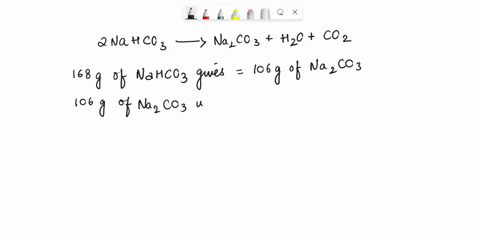 2NaHCO3 ⟶ Na2CO3 + H2O + CO2
168g of NaHCO3 gives = 106g of Na2CO3
106 g of Na2CO3 u